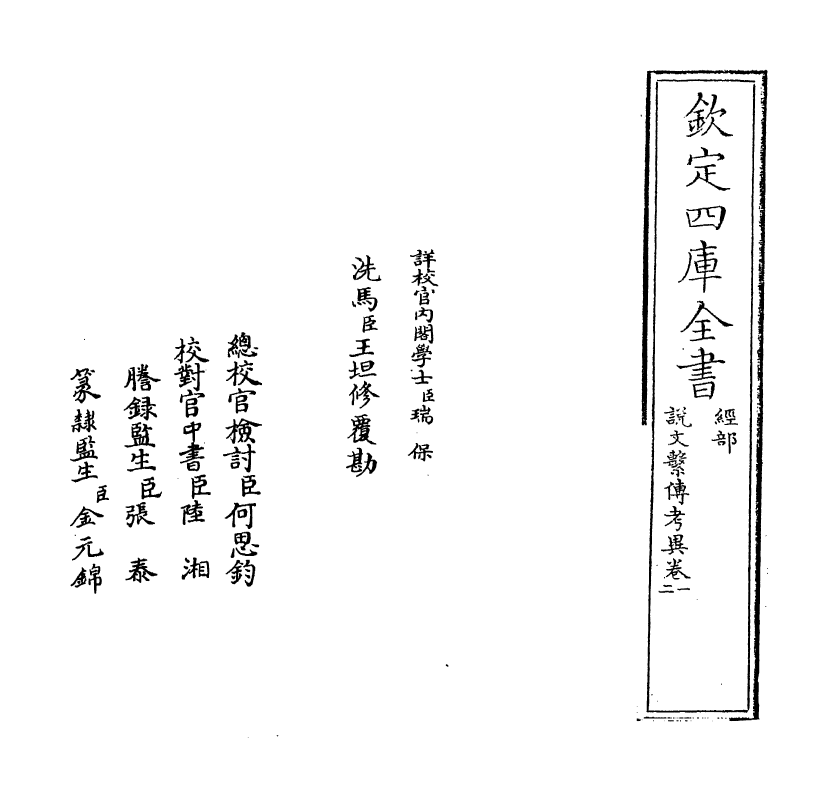 欽定四庫全書
經部
說文繫傳考異卷一二
詳校官內閣學士臣瑞保
洗馬臣王坦修覆勘
總校官檢討臣何思鈞
校對官中書臣陸湘
謄錄監生臣張泰
篆隸監生臣金元錦